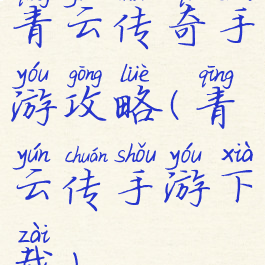 青云传奇手
yóu gōng lüè qīng
游攻略(青
yún chuán shǒu yóu xià
云传手游下
zài
载)